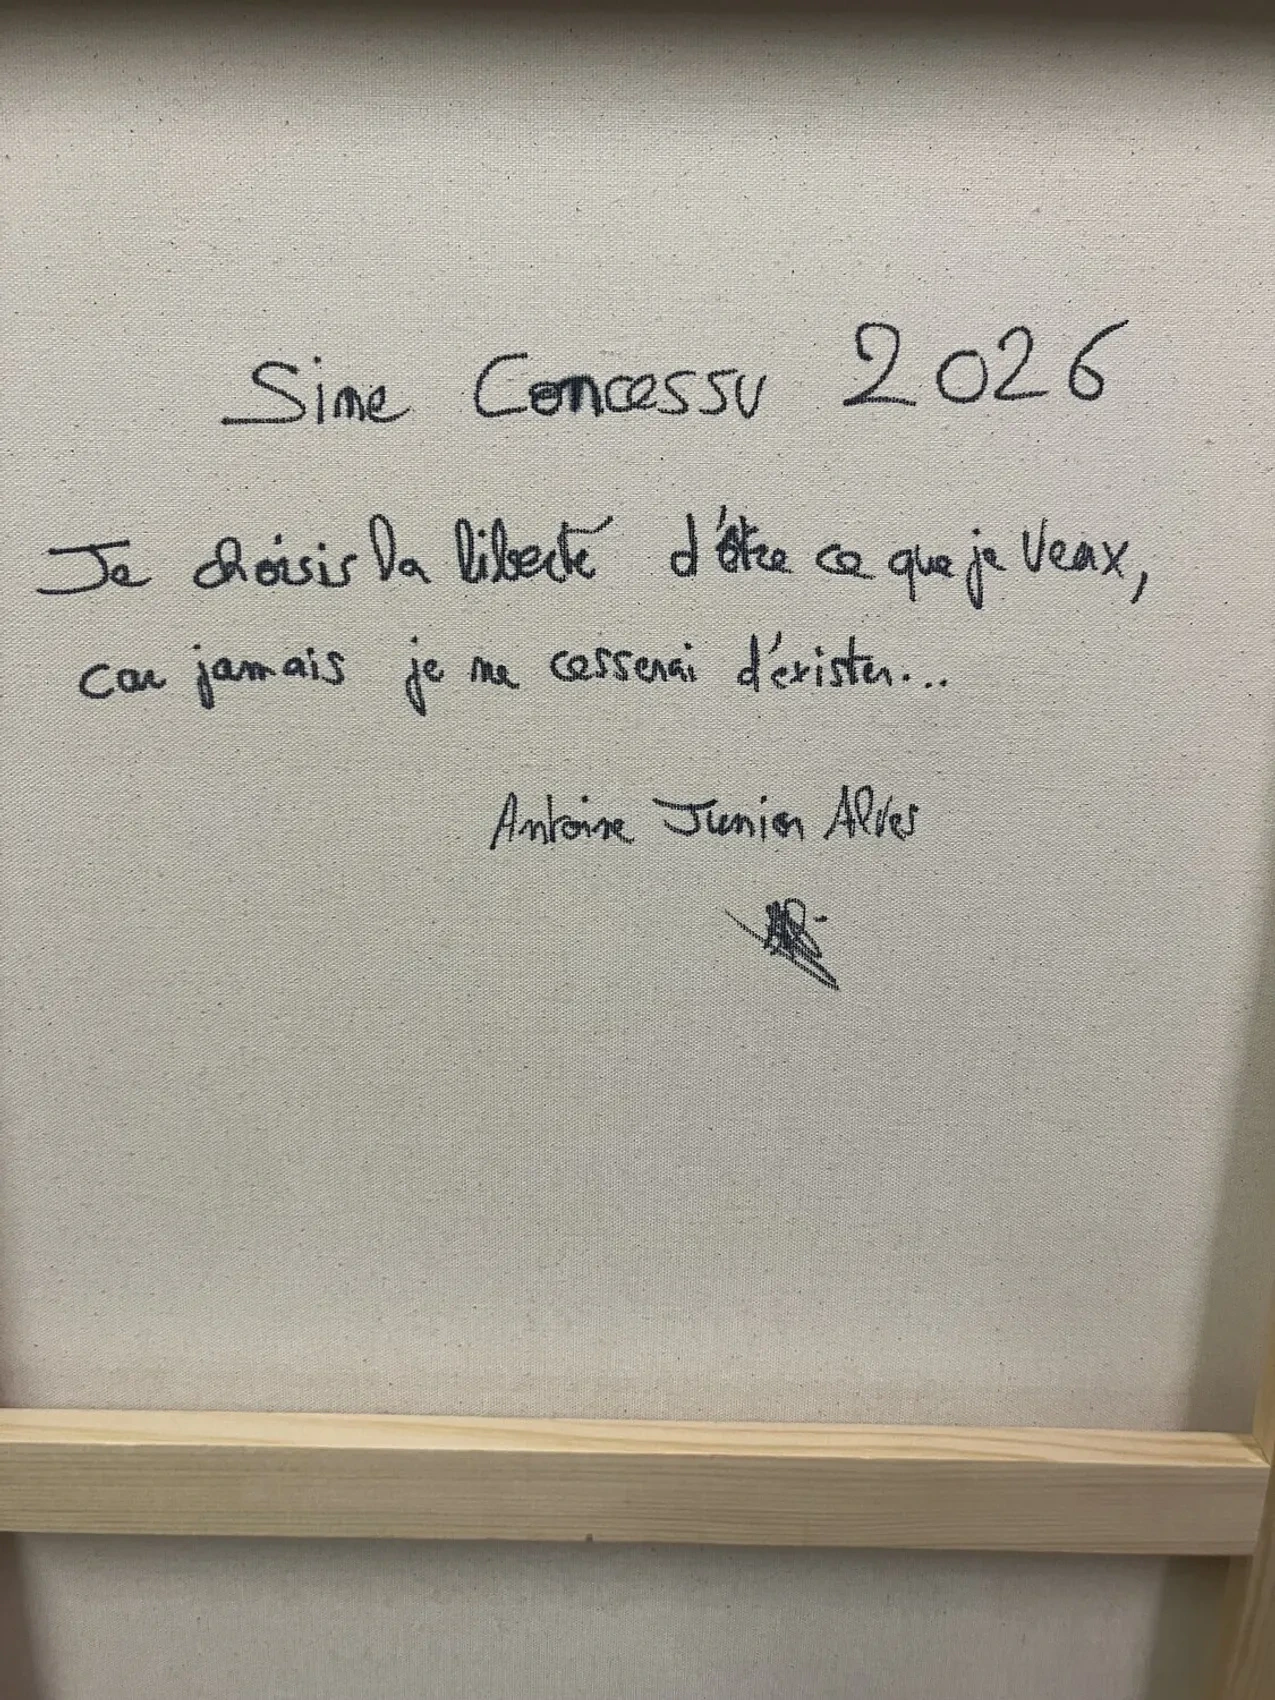 Sine Concessu 2026
Je choisis la liberté d'être ce que je veux,
car jamais je ne cesserai d'éxister...
Antoine Junior Alves